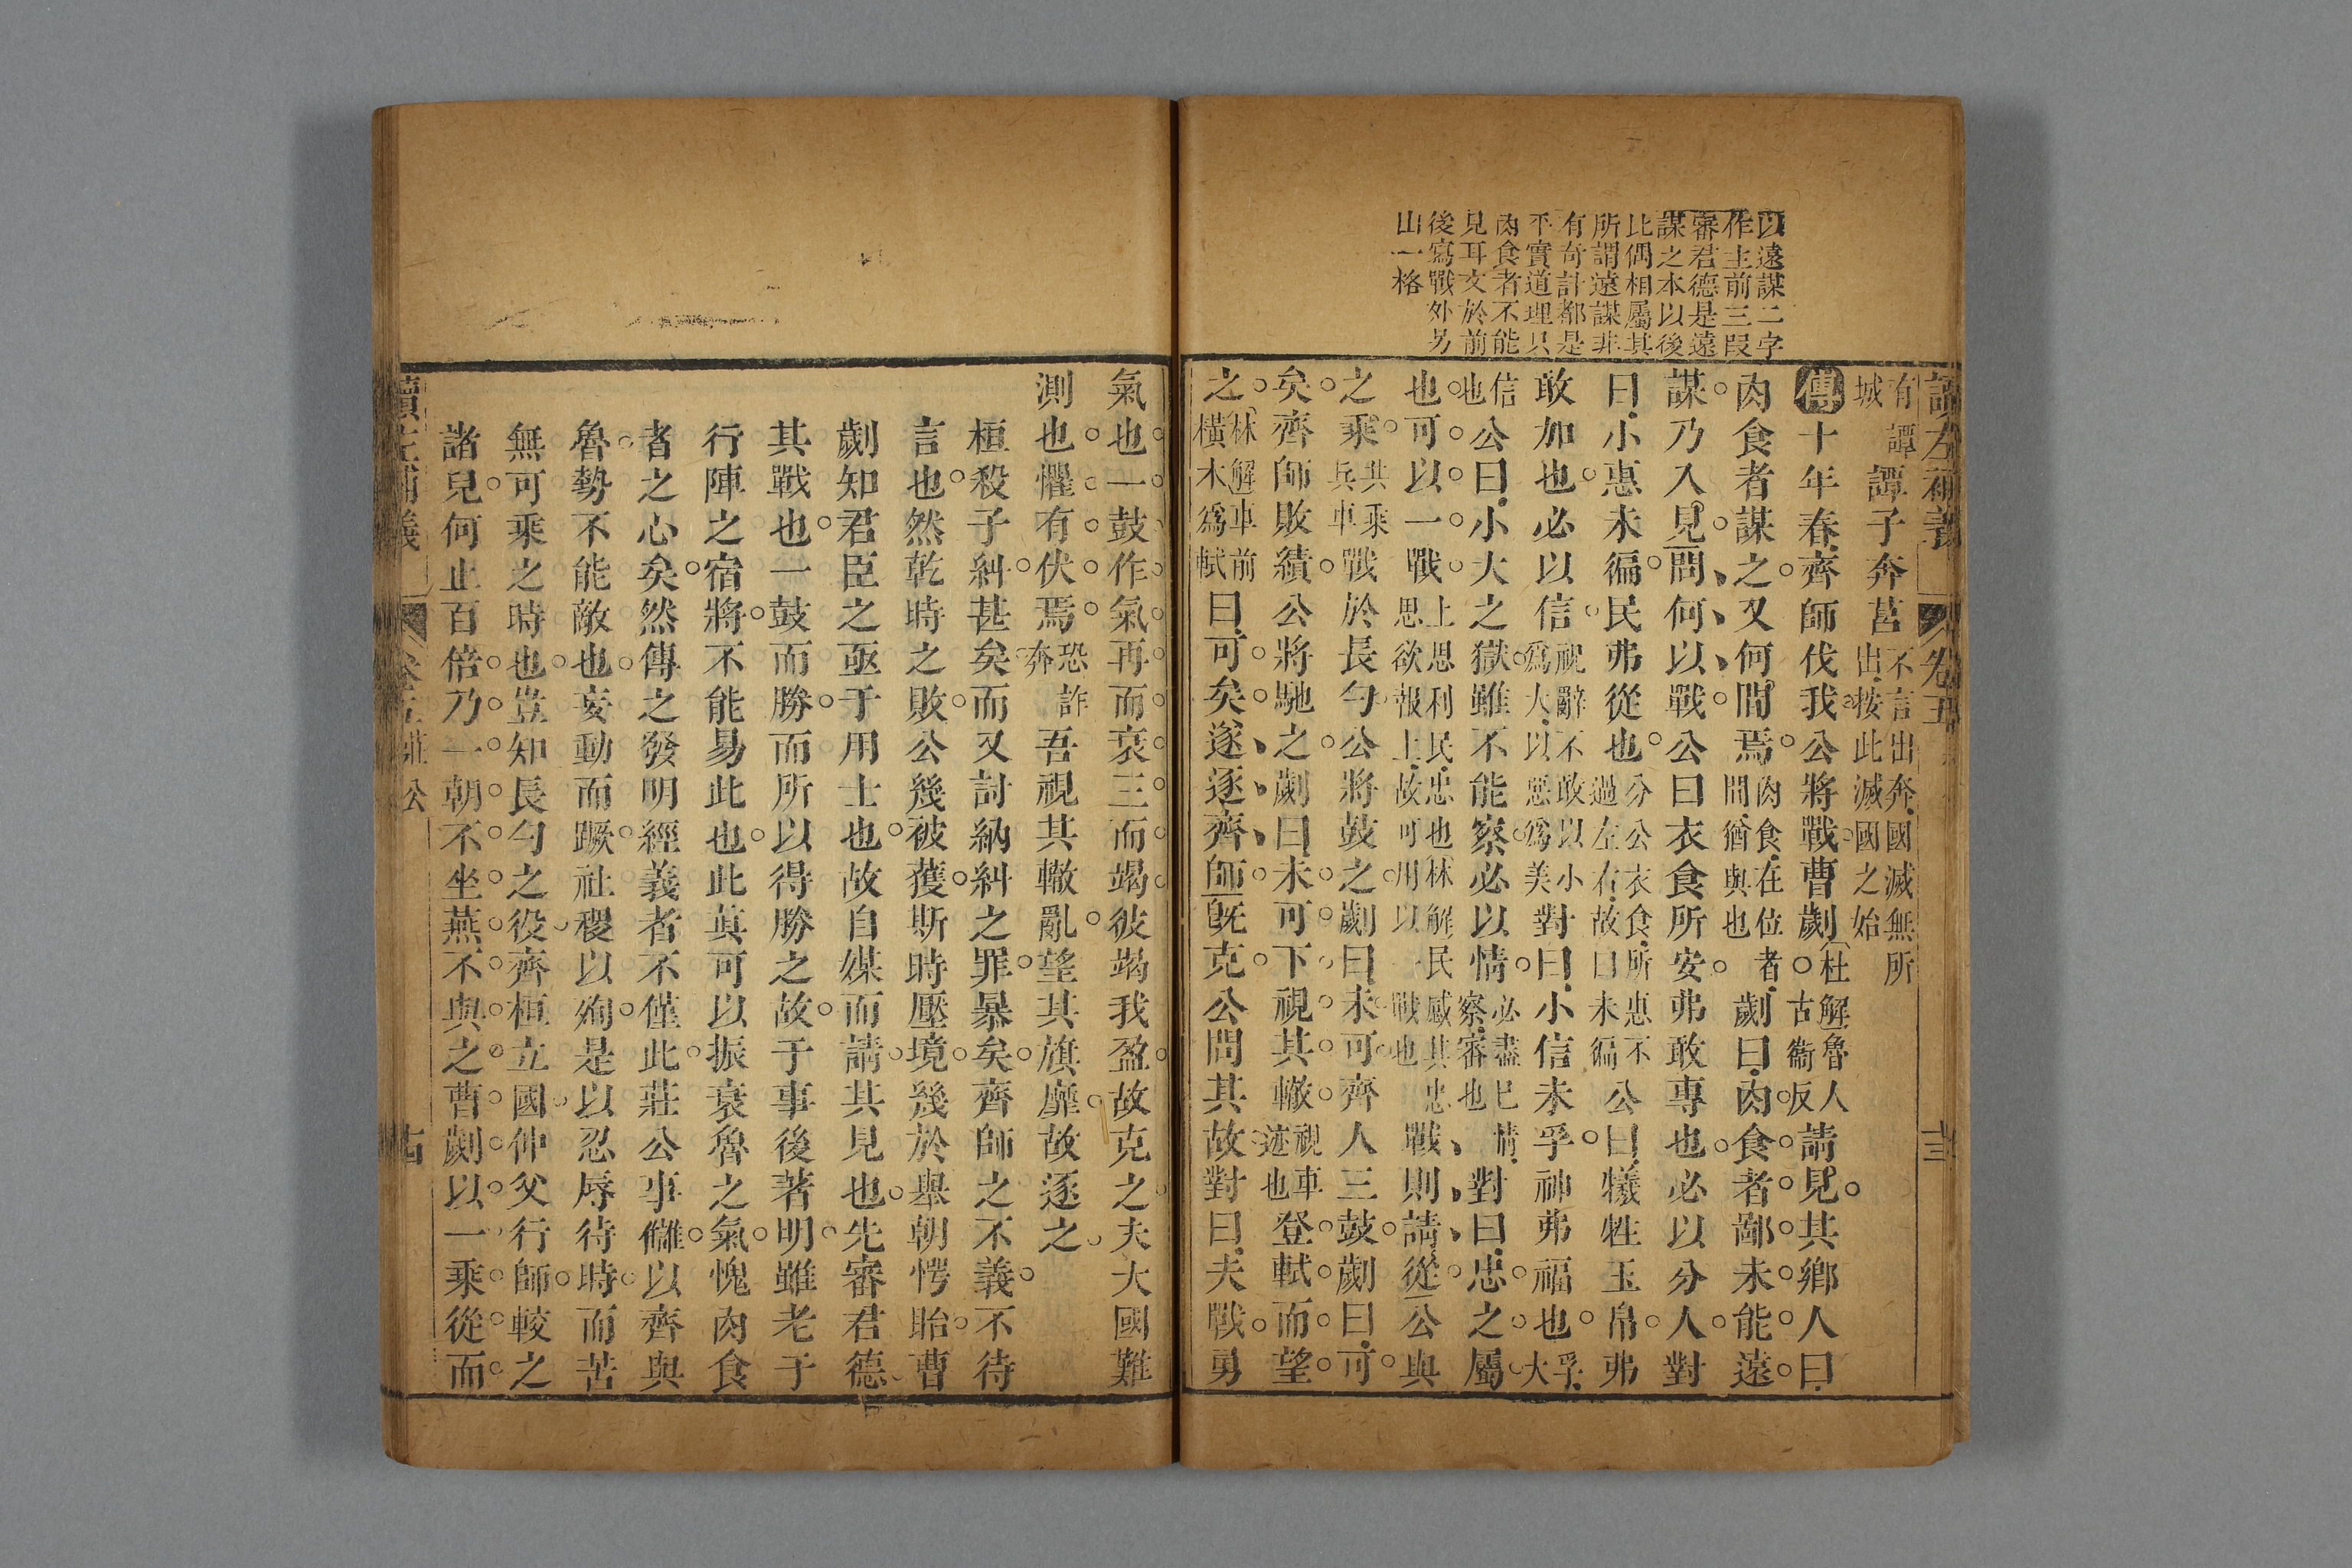 讀左補義 卷五 十三
以遠謀二字
作主前三段
審君德是遠
謀之本以後
比偶相屬其
所謂遠謀非
有奇計都是
平實道理只
肉食者不能
見耳文於前
後寫戰外另
山一格
有譚城譚子奔莒不言出奔國滅無所出按此滅國之始
傳十年春齊師伐我公將戰曹劌杜解魯人古衞反請見其鄉人曰
肉食者謀之又何間焉肉食在位者間猶與也劌曰肉食者鄙未能遠
謀乃入見問何以戰公曰衣食所安弗敢專也必以分人對
曰小惠未徧民弗從也分公衣食所惠不過左右故曰未徧公曰犧牲玉帛弗
敢加也必以信祝辭不敢以小爲大以惡爲美對曰小信未孚神弗福也孚大
信也公曰小大之獄雖不能察必以情必盡己情察審也對曰忠之屬
也可以一戰上思利民忠也林解民感其忠思欲報上故可用以一戰也戰則請從公與
之乘共乘兵車戰於長勺公將鼓之劌曰未可齊人三鼓劌曰可
矣齊師敗績公將馳之劌曰未可下視其轍視車迹也登軾而望
之林解車前橫木爲軾曰可矣遂逐齊師既克公問其故對曰夫戰勇
氣也一鼓作氣再而衰三而竭彼竭我盈故克之夫大國難
測也懼有伏焉恐詐奔吾視其轍亂望其旗靡故逐之
桓殺子糾甚矣而又討納糾之罪暴矣齊師之不義不待
言也然乾時之敗公幾被獲斯時壓境幾於舉朝愕眙曹
劌知君臣之亟于用士也故自媒而請其見也先審君德
其戰也一鼓而勝而所以得勝之故于事後著明雖老于
行陣之宿將不能易此也此眞可以振衰魯之氣愧肉食
者之心矣然傳之發明經義者不僅此莊公事讎以齊與
魯勢不能敵也妄動而蹶社稷以殉是以忍辱待時而苦
無可乘之時也豈知長勺之役齊桓立國仲父行師較之
諸兒何止百倍乃一朝不坐燕不與之曹劌以一乘從而
讀左補義 卷五 莊公 古